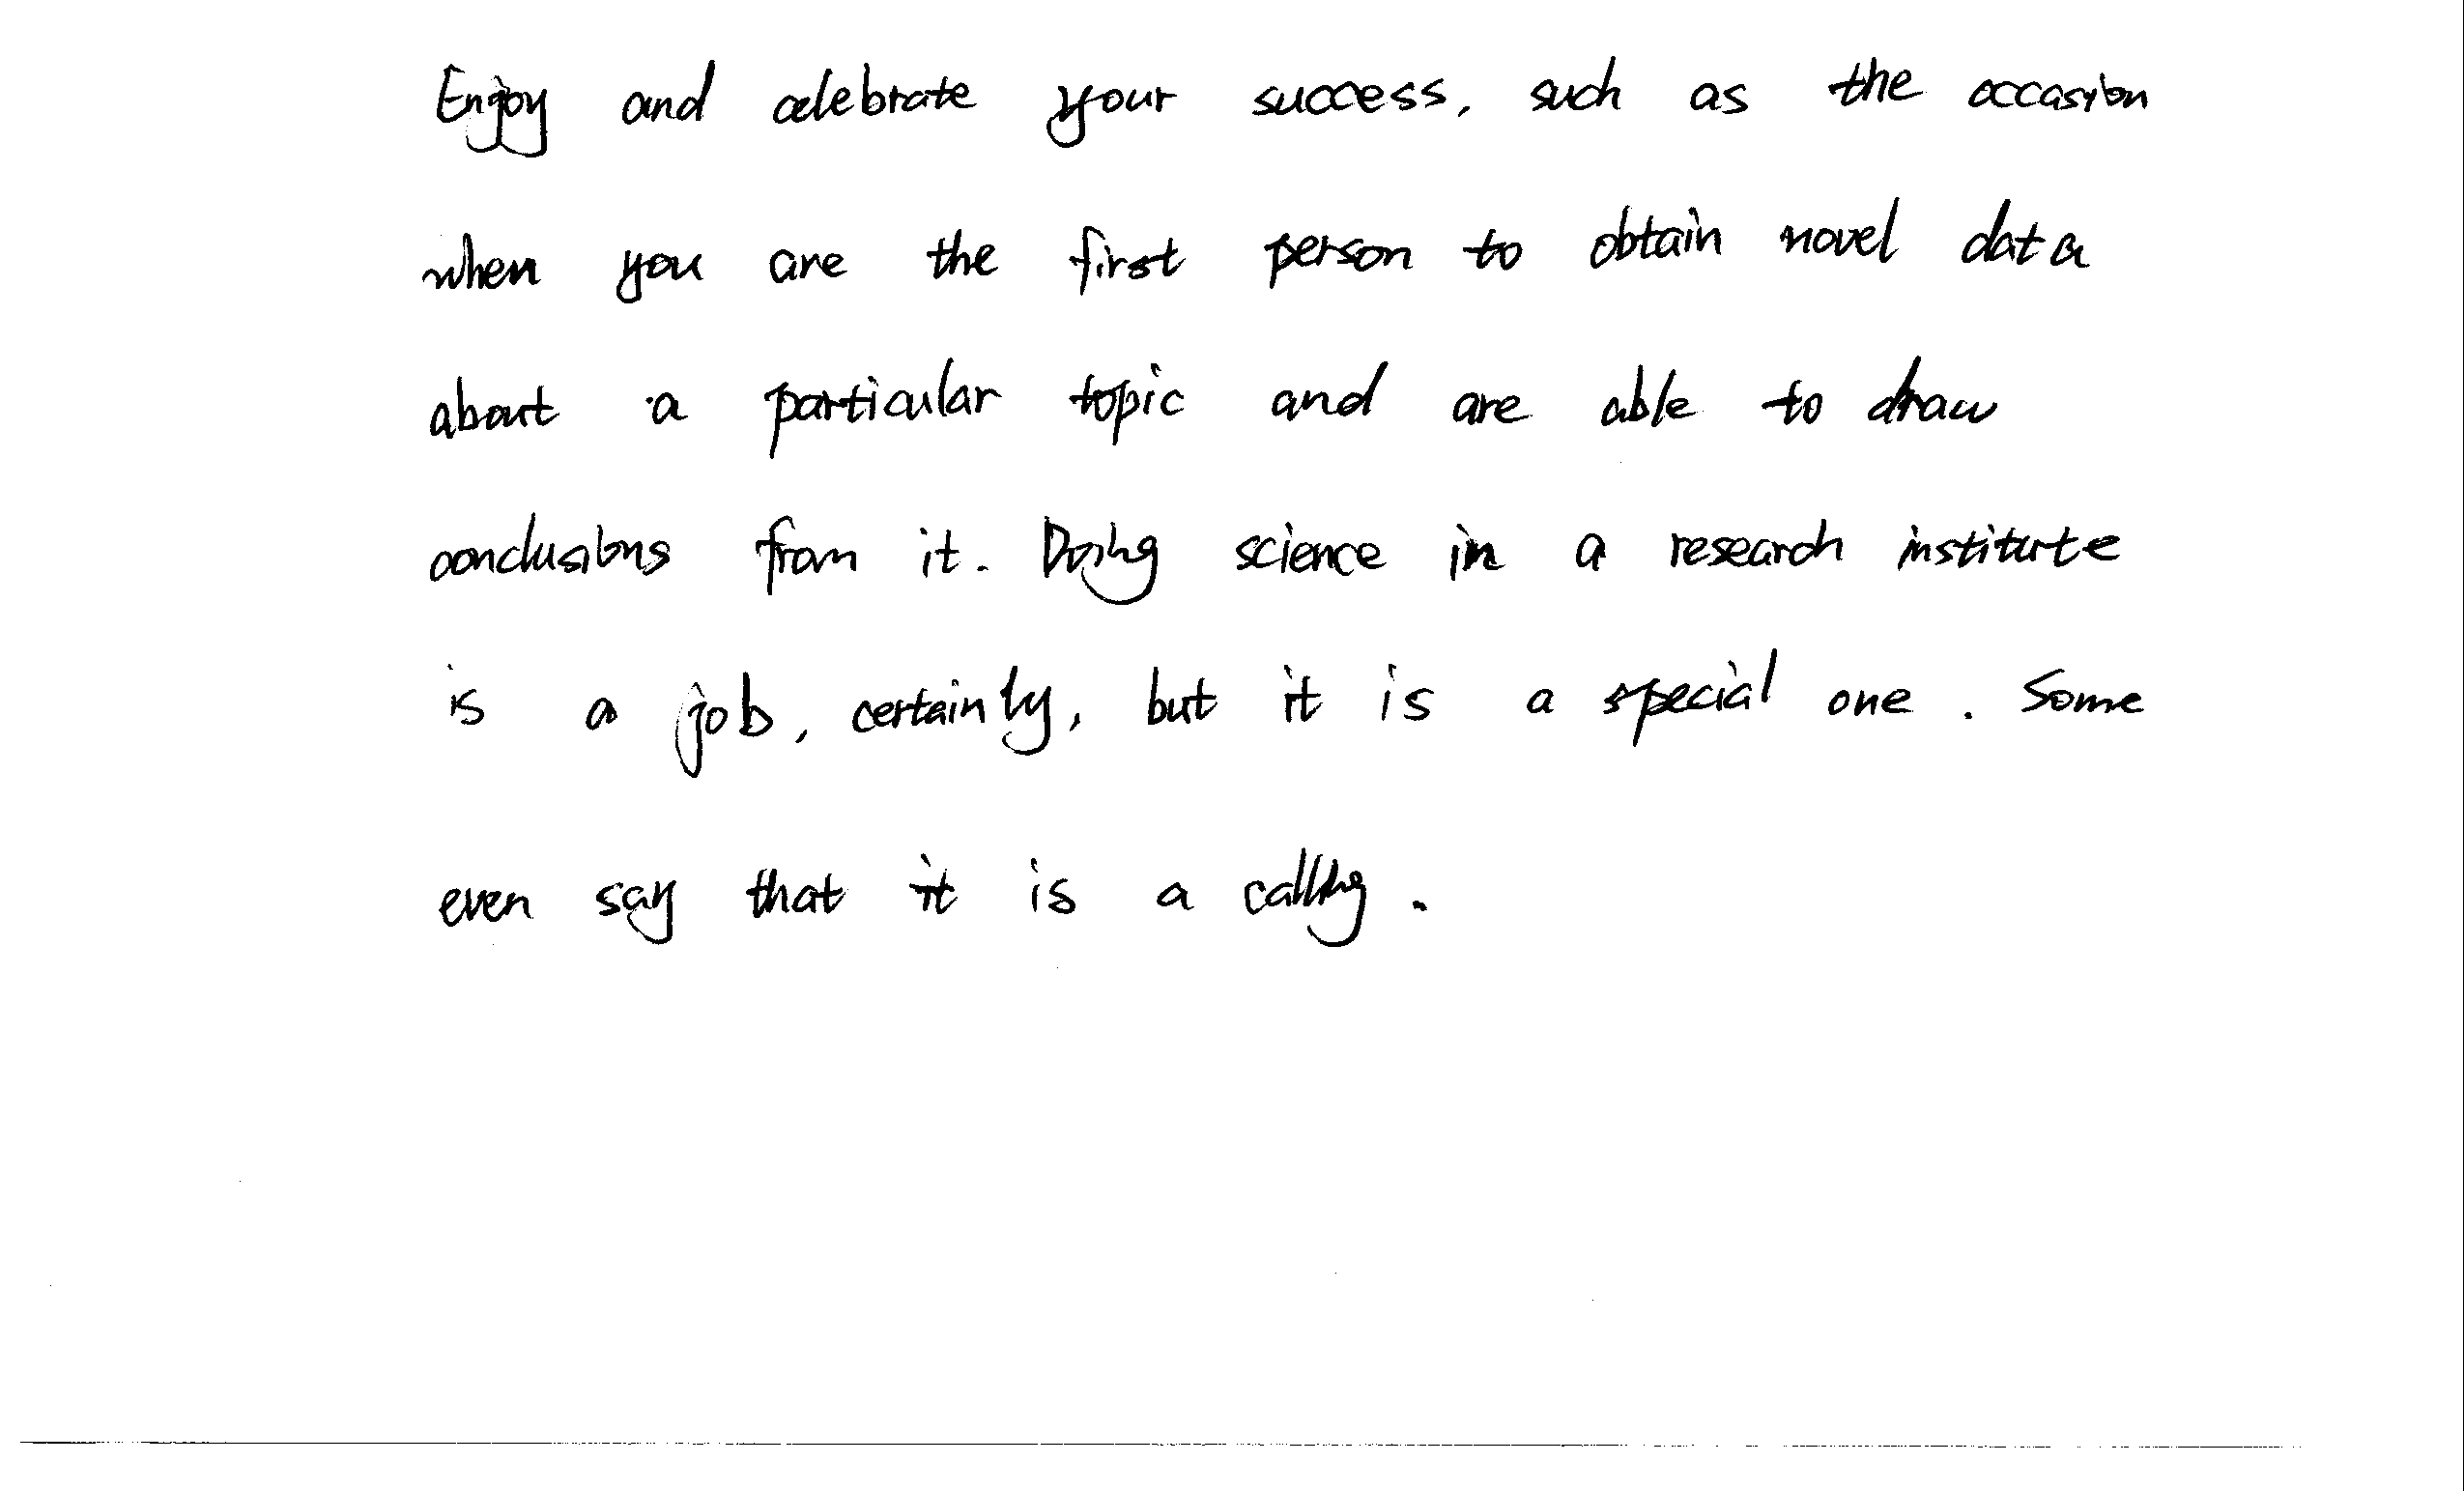 Enjoy and celebrate your success, such as the occasion
when you are the first person to obtain novel data
about a particular topic and are able to draw
conclusions from it. Doing science in a research institute
is a job, certainly, but it is a special one. Some
even say that it is a calling.